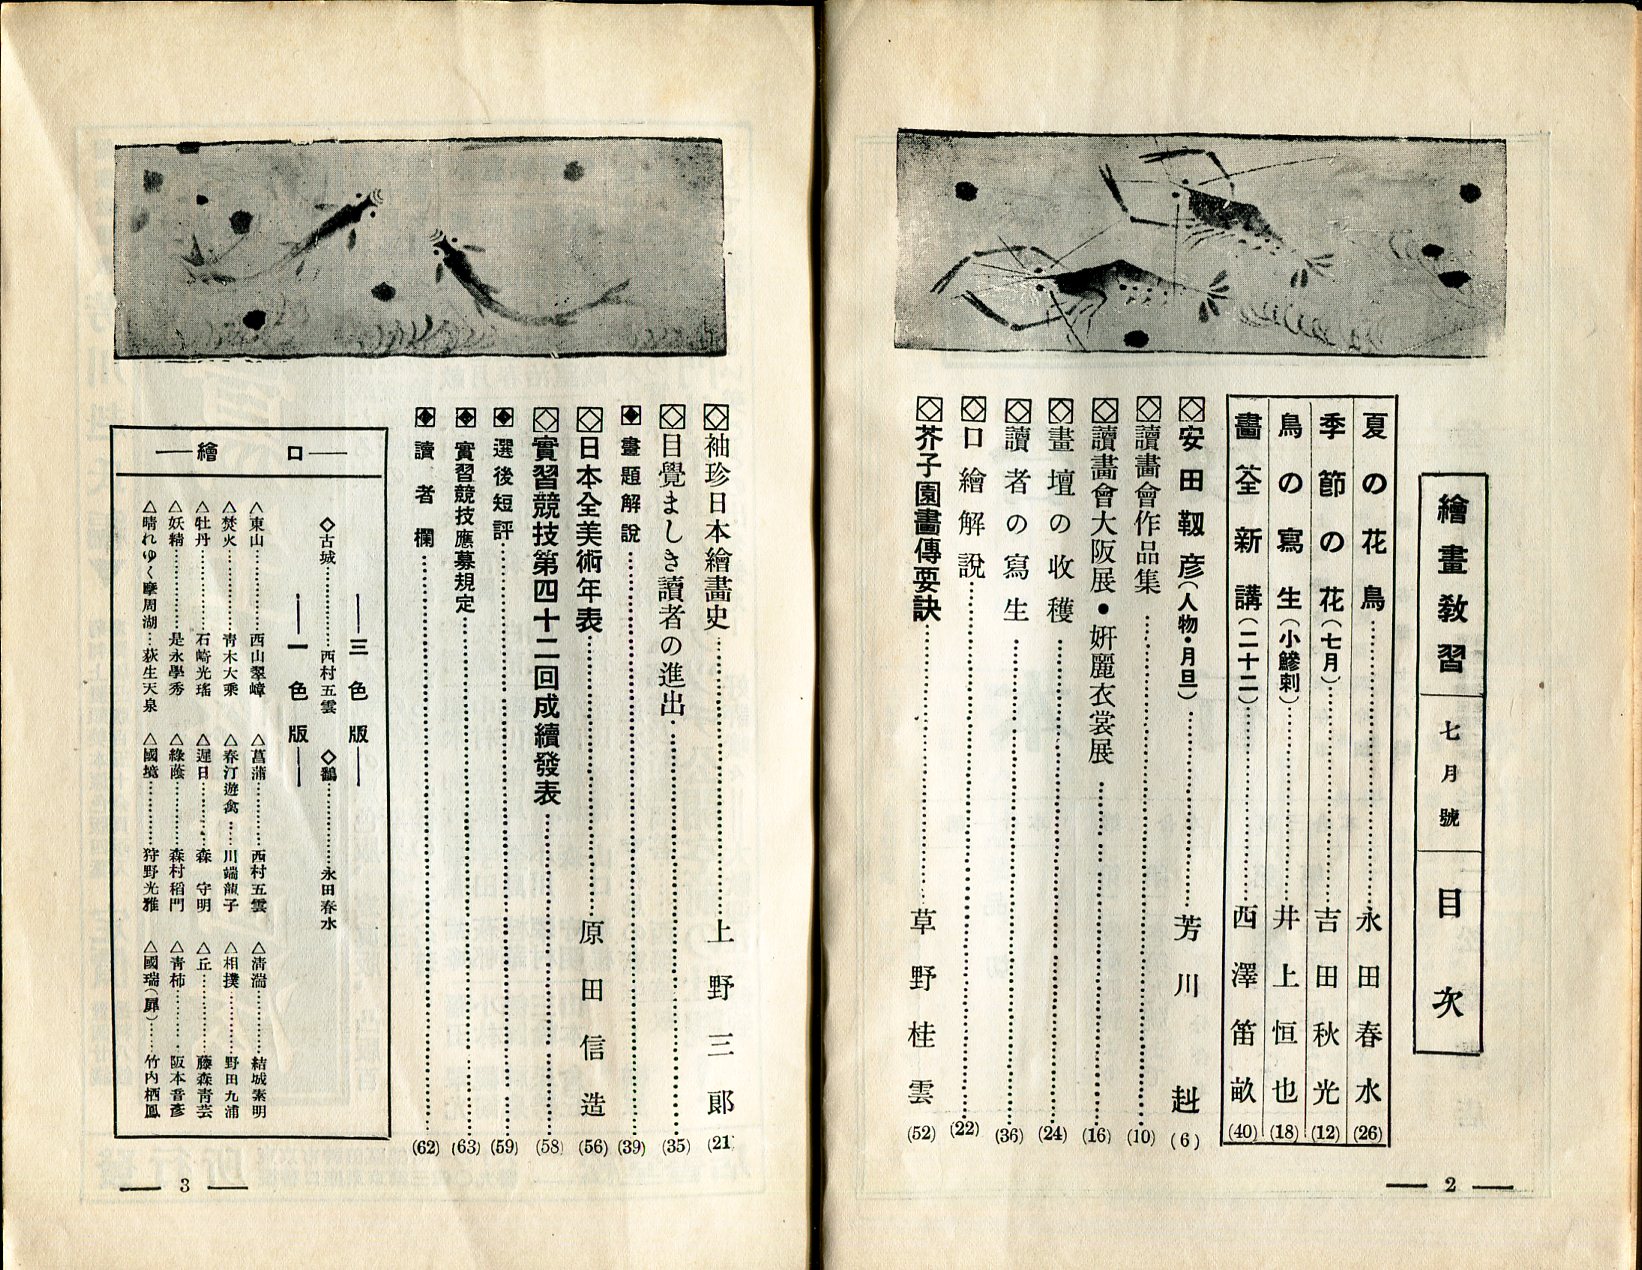 繪畫教習 七月號 目次
夏の花鳥……永田春水(26)
季節の花(七月)……吉田秋光(12)
鳥の寫生(小鰺刺)……井上恒也(18)
畫筌新講(二十二)……西澤笛畝(40)
安田靱彦(人物・月旦)……芳川赳(6)
讀畫會作品集……(10)
讀畫會大阪展・姸麗衣裳展……(16)
畫壇の收穫……(24)
讀者の寫生……(36)
口繪解說……(22)
芥子園畫傳要訣……草野桂雲(52)
2
袖珍日本繪畫史……上野三郞(21)
目覺ましき讀者の進出……(35)
畫題解說……(39)
日本全美術年表……原田信造(56)
實習競技第四十二回成績發表……(58)
選後短評……(59)
實習競技應募規定……(63)
讀者欄……(62)
口繪
三色版
◇古城……西村五雲 ◇鷭……永田春水
一色版
△東山……西山翠嶂 △菖蒲……西村五雲 △淸湍……結城素明
△焚火……靑木大乘 △春汀遊禽……川端龍子 △相撲……野田九浦
△牡丹……石崎光瑤 △遲日……森守明 △丘……藤森靑芸
△妖精……是永學秀 △綠蔭……森村稻門 △靑柿……阪本音彥
△晴れゆく摩周湖…荻生天泉 △國境……狩野光雅 △國瑞(犀)……竹內栖鳳
3